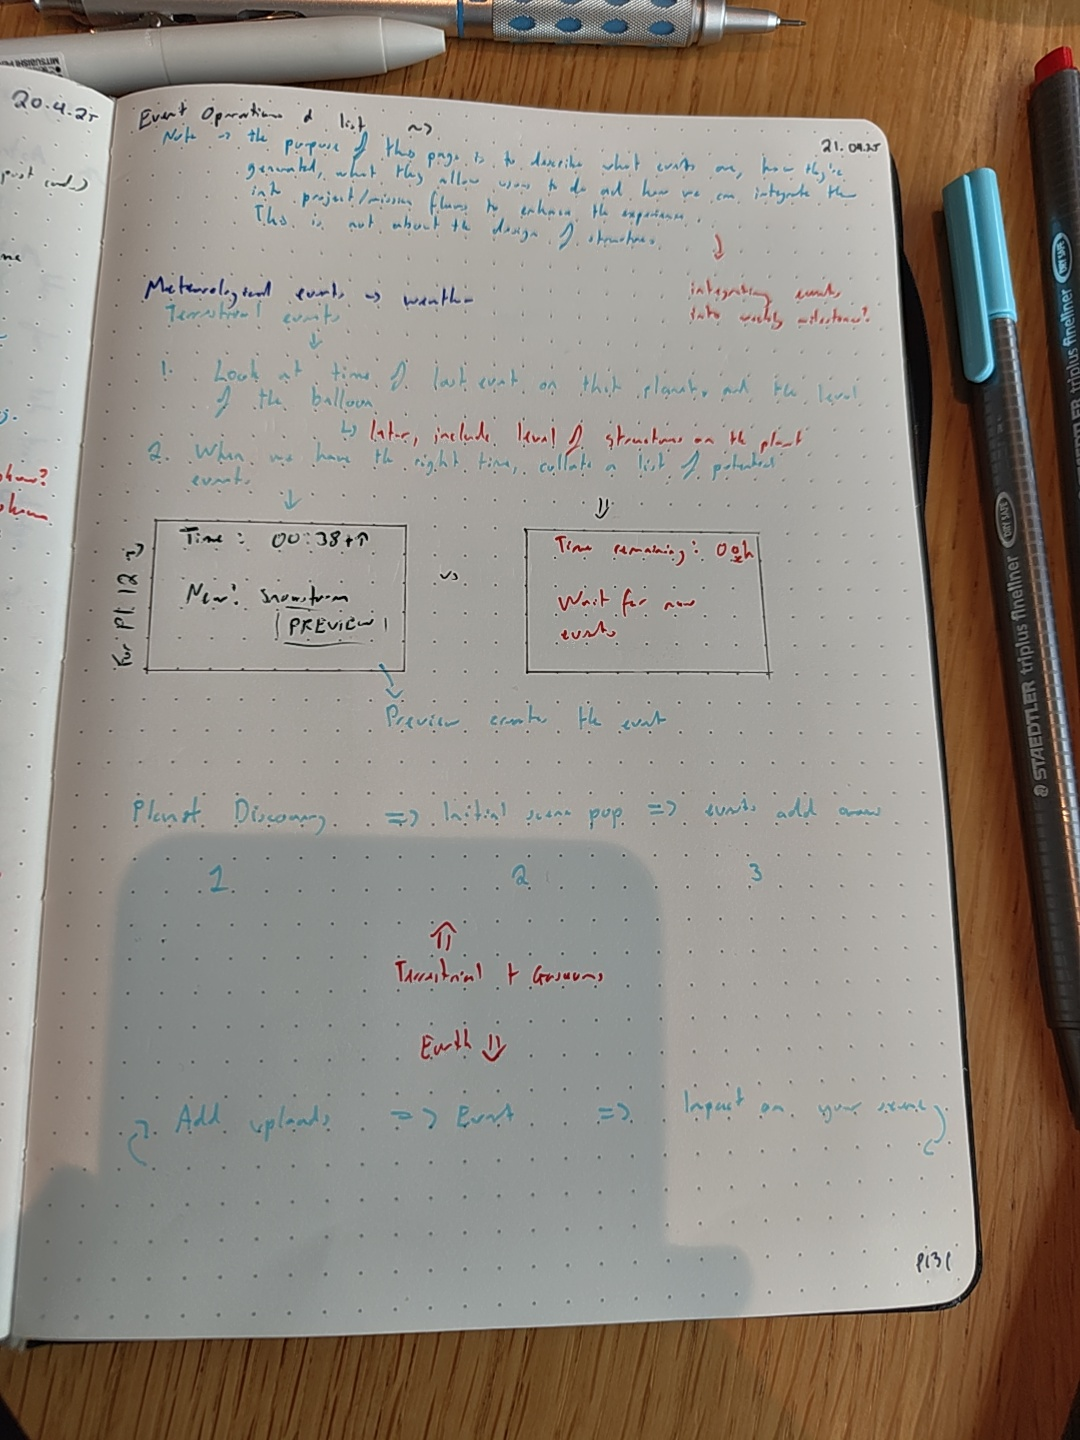 20.4.25
Event Operations & list ~>
21.04.25
Note -> the purpose of this page is to describe what events are, how they're
generated, what they allow users to do and how we can integrate them
into project/mission flows to enhance the experience.
This is not about the design of structures.
integrating events
into weekly milestones?
Meteorological events -> weather
Terrestrial events
1. Look at time of last event on this planet, and the level
of the balloon
↳ later, include level of structures on the planet
2. When we have the right time, collate a list of potential
events
For Pl. 12
Time: 00:38
New: Snowstorm
PREVIEW
vs
Time remaining: 00h
Wait for new
events
Preview creates the event
Planet Discovery => Initial scene pop => events add
1 2 3
Terrestrial + Gaseous
Earth
Add uploads => Event => Impact on your scene
P131
MITSUBISHI PENCIL
STAEDTLER triplus fineliner
DRY SAFE
triplus fineliner
DRY SAFE